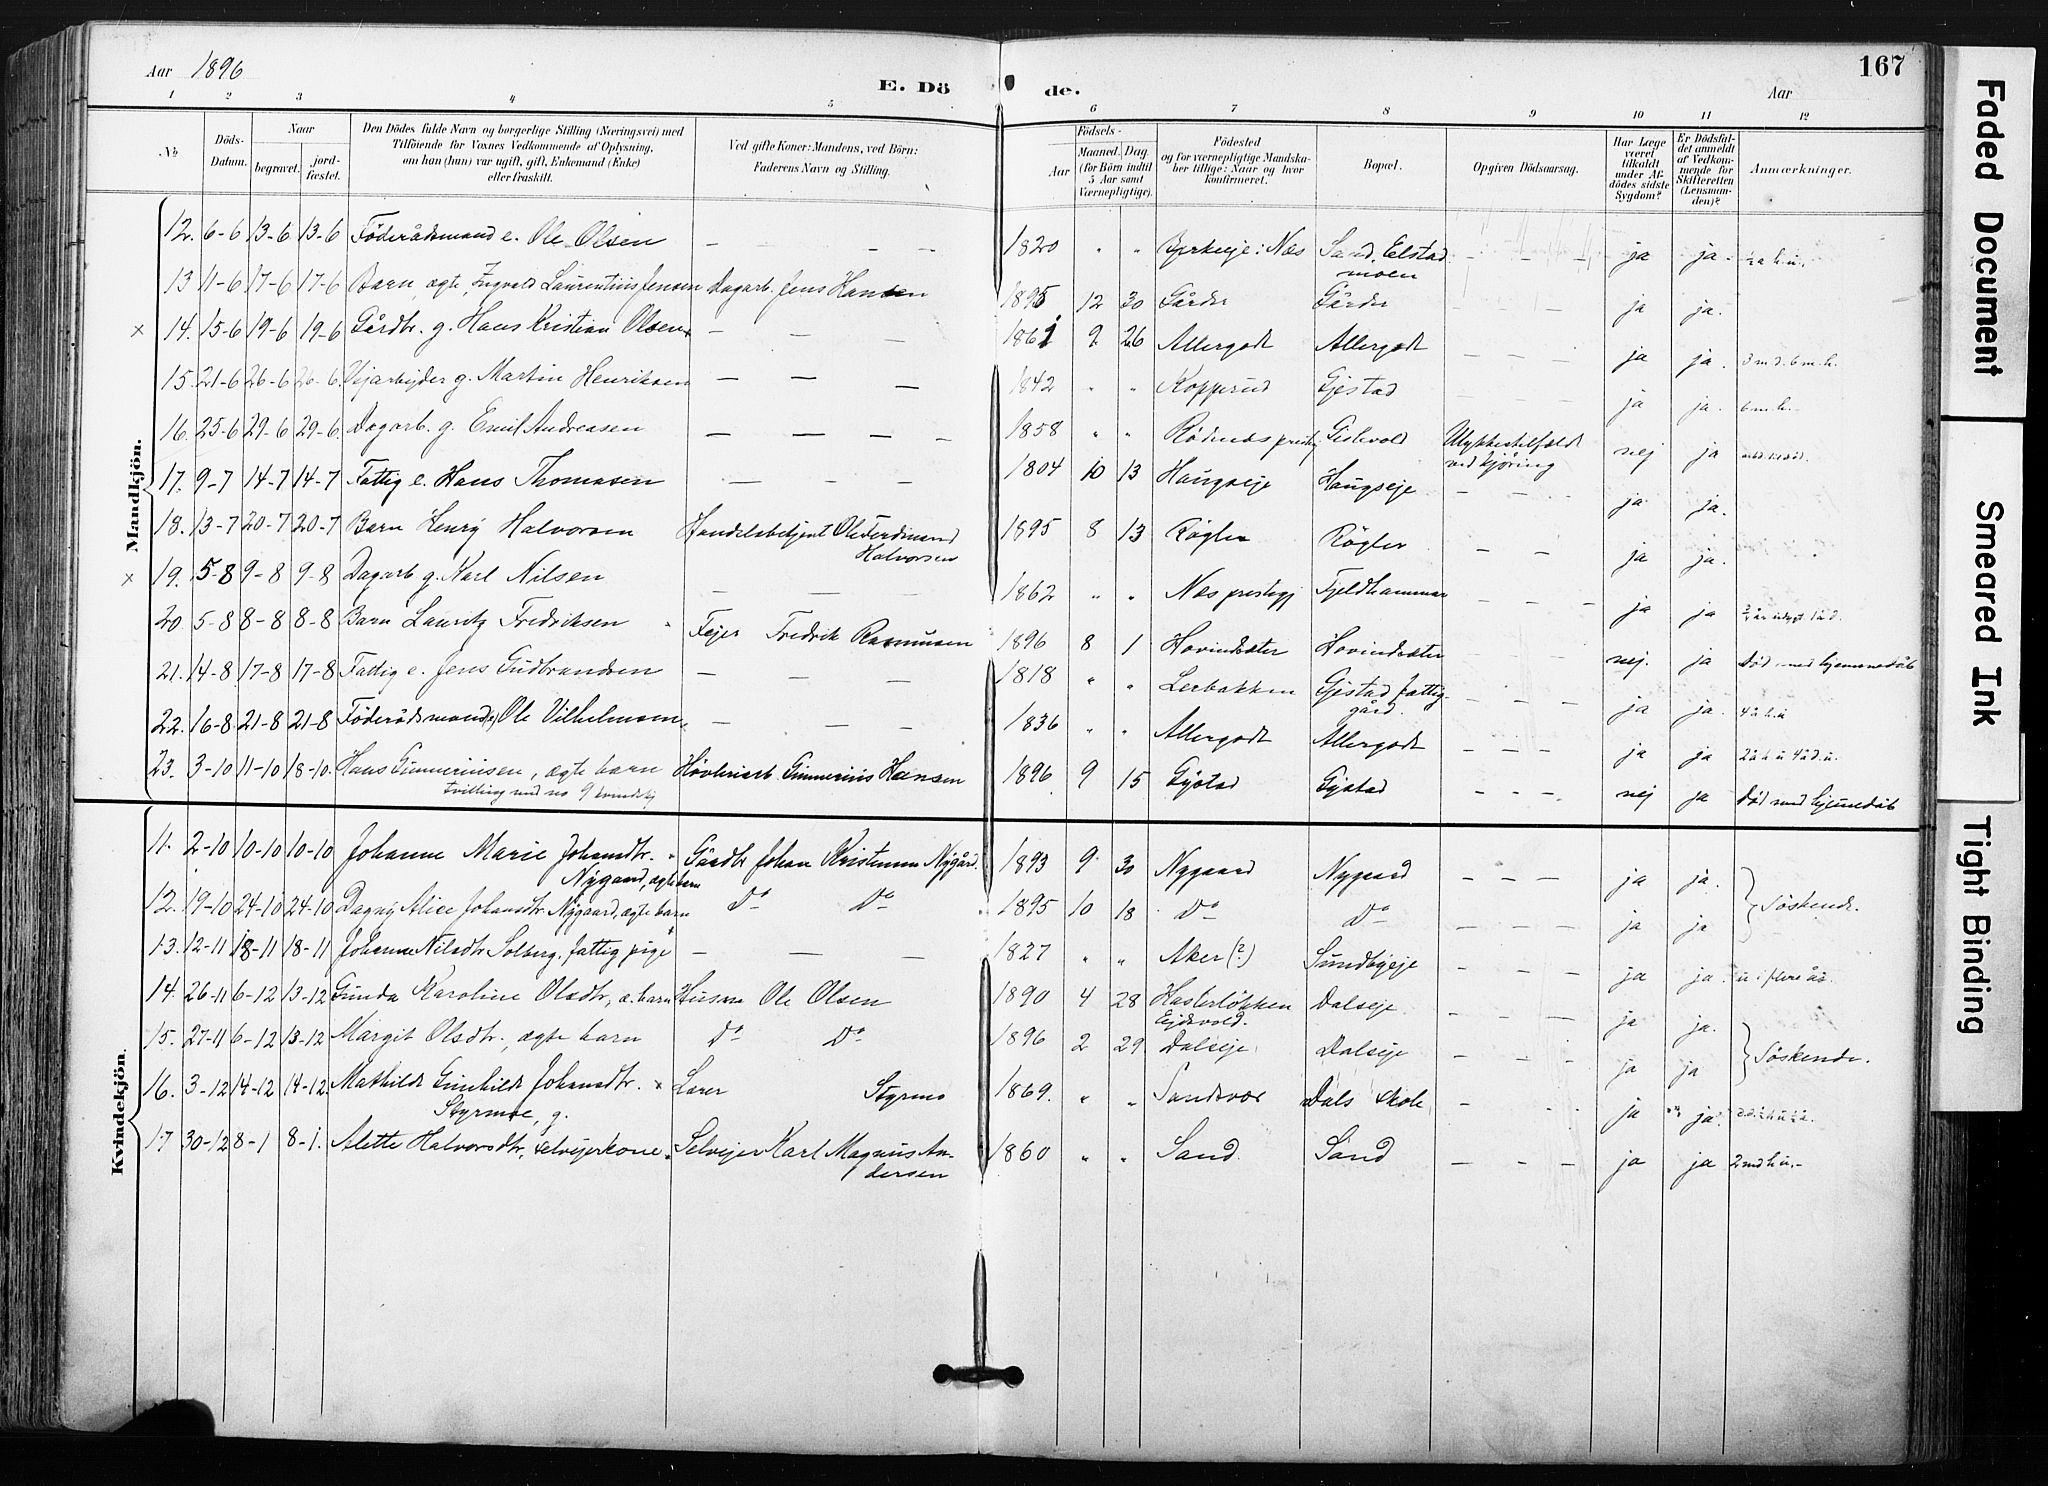 Aar 1896
E. Dö de.
167
Aar
1 2 3 4 5 6 7 8 9 10 11 12
No
Döds-Datum.
Naar
begravet.
jord-fæstet.
Den Dödes fulde Navn og borgerlige Stilling (Næringsvei) med
Tilföiende for Voxnes Vedkommende af Oplysning,
om han (hun) var ugift, gift, Enkemand (Enke)
eller fraskilt.
Ved gifte Koner: Mandens, ved Börn:
Faderens Navn og Stilling.
Födsels-
Aar
Maaned. Dag
(for Börn indtil
5 Aar samt
Værnepligtige).
Födested
og for værnepligtige Mandska-
ber tillige: Naar og hvor
konfirmeret.
Bopæl.
Opgiven Dödsaarsag.
Har Læge
været
tilkaldt
under Af-
dödes sidste
Sygdom?
Er Dödsfal-
det anmeldt
af Vedkom-
mende for
Skifteretten
(Lensman-
den)?
Anmærkninger.
Mandkjön.
12. 6-6 13-6 13-6 Föderådsmand e. Ole Olsen — — — 1820 " " Næs Sand, Elstad - - - - ja ja.
moen
13 11-6 17-6 17-6 Barn, ægte, Ingvald Laurentius Jensen Dagarb. Jens Hansen 1895 12 30 Gårder Gårder ja ja.
× 14. 15-6 19-6 19-6 Gårdbr. g. Hans Kristian Olsen — — — 1861 9 26 Allergodt Allergodt - - - ja ja. 3 m d. 6 m. h.
15. 21-6 26-6 26-6 Vejarbejder g. Martin Henriksen — — — 1842 " " Kopperud Gjestad - - - ja ja. 6 m. h.
16. 25-6 29-6 29-6 Dagarb. g. Emil Andreasen — — — — 1858 " " Rödenæs prestgj Gislevold Ulykkestilfældt nej ja
ved kjöring
17. 9-7 14-7 14-7 Fattig e. Hans Thomasen - — — — 1804 10 13 Haugseje Haugseje - - - ja ja.
18. 13-7 20-7 20-7 Barn Henry Halvorsen Handelsbetjent Ole Ferdinand 1895 8 13 Rögler Rögler - - ja ja.
Halvorsen
× 19. 5-8 9-8 9-8 Dagarb g. Karl Nilsen — — — 1862 " " Næs prestegj Fjeldhammar - - - ja ja
20. 5-8 8-8 8-8 Barn Lauritz Fredriksen Fejer Fredrik Rasmussen 1896 8 1 Hovindsæter Hovindsæter - - - nej. ja död med hjemmedåb
21. 14-8 17-8 17-8 Fattig e. Jens Gudbrandsen — — — 1818 " " Lerbakken Gjestad fattig- - - - ja ja. 4 å h. u
gård.
22. 16-8 21-8 21-8 Föderådsmand e, Ole Vilhelmsen — — — 1836 " " Allergodt Allergodt - - - ja ja 2 å h u 4 å d. u.
23. 3-10 11-10 18-10 Hans Gunneriusen, ægte barn Hövleriarb Gunnerius Hansen 1896 9 15 Gjestad Gjestad - - - nej ja död med hjemmedåb
tvilling med no 9 kvindekj
Kvindekjön.
11. 2-10 10-10 10-10 Johanne Marie Johansdtr. Gårdbr Johan Kristensen Nygård. 1893 9 30 Nygaard Nygaard - — — ja ja.
Nygaard, ægte barn
12. 19-10 24-10 24-10 Dagny Alice Johansdtr. Nygaard, ægte barn Do Do 1895 10 18 Do Do - - - ja ja } Söskende.
13. 12-11 18-11 18-11 Johanne Nilsdtr Solberg, fattig pige — — — 1827 " " Aker (?) Sundbyeje - - - ja ja. u i flere år
14. 26-11 6-12 13-12 Gunda Karoline Olsdtr, æ. barn Husm Ole Olsen 1890 4 28 Hasterlökken Dalseje - - - ja ja.
Ejdsvold.
15. 27-11 6-12 13-12 Margit Olsdtr., ægte barn Do Do 1896 2 29 Dalseje Dalseje - - - ja ja } Söskende.
16. 3-12 14-12 14-12. Mathilde Gunhilde Johansdtr. × Lærer Styrmo 1869. " " Sandsvær Dals skole - - - ja ja.
Styrmoe, g.
17 30-12 8-1 8-1. Alette Halvorsdtr, selvejerkone Selvejer Karl Magnus An- 1860 " " Sand. Sand - - - ja ja 2 md h u.-
dersen
Faded Document
Smeared Ink
Tight Binding